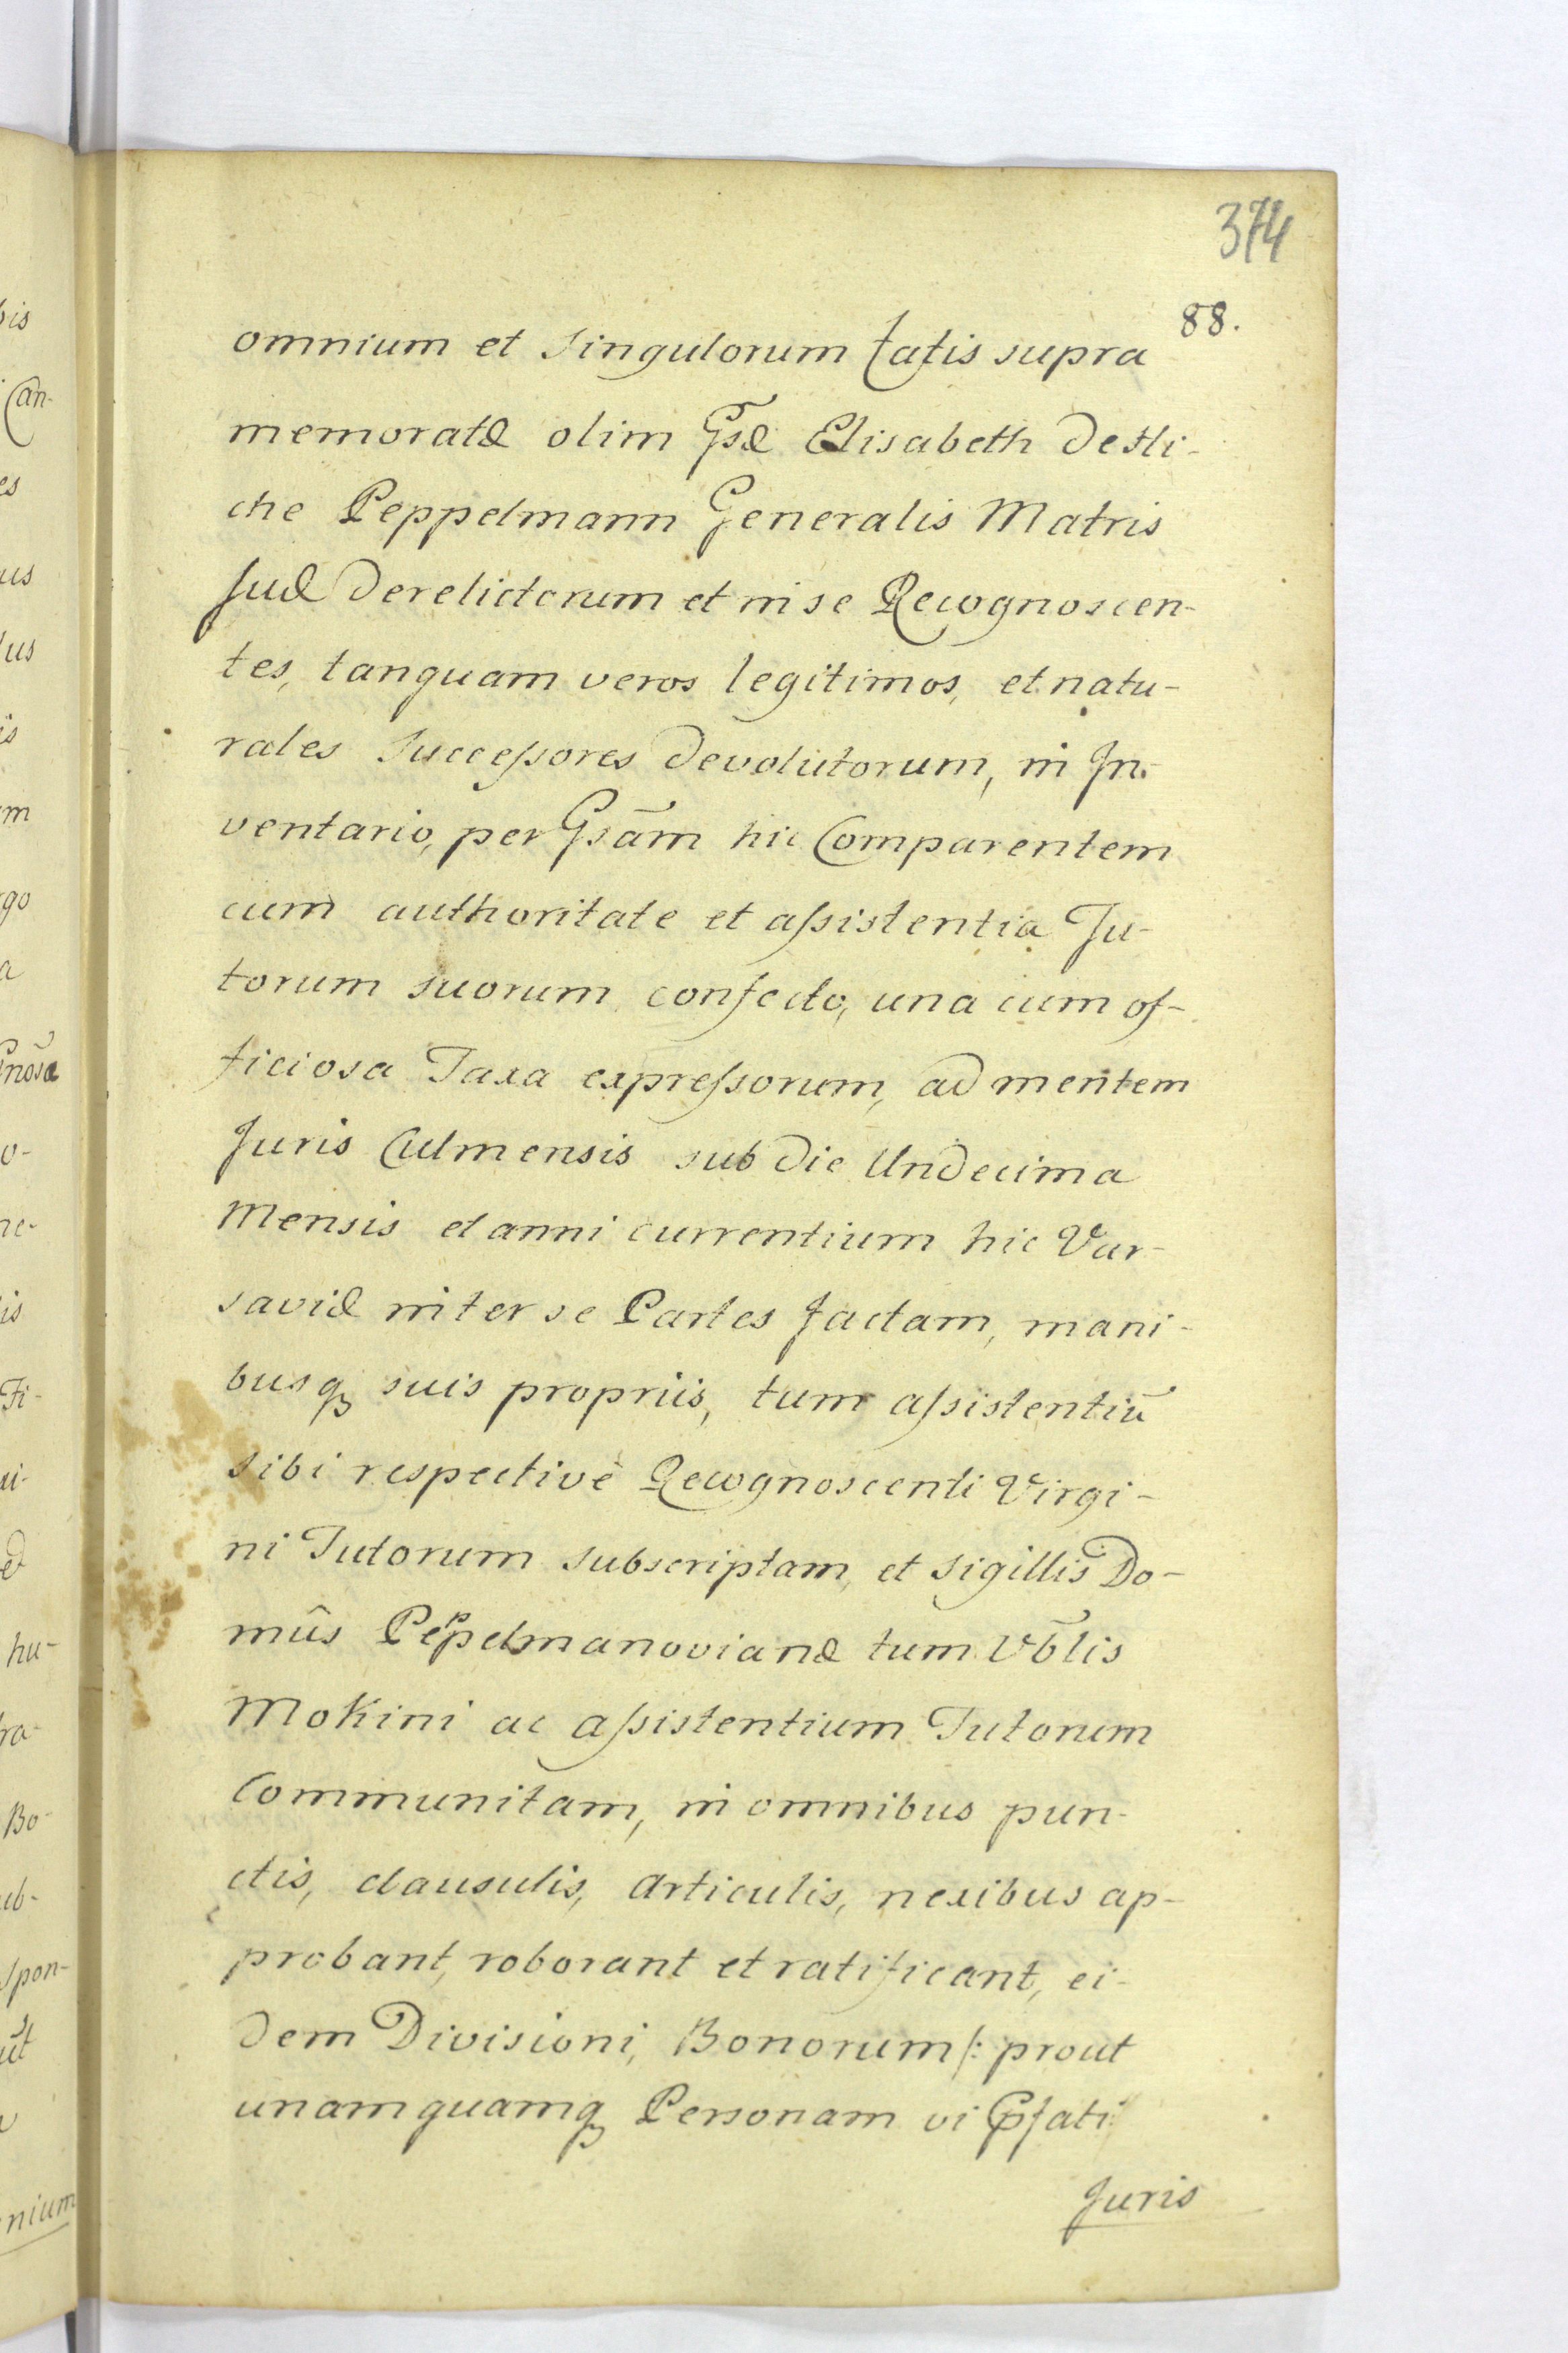 374
88.
omnium et singulorum fatis supra
memoratæ olim Gsæ Elisabeth Destli-
che Peppelmann Generalis Matris
suæ derelictorum et in se Recognoscen-
tes, tanquam veros legitimos, et natu-
rales Successores devolutorum, in In-
ventario, per Gsām hic Comparentem
cum authoritate et assistentia Tu-
torum suorum confecto, una cum of-
ficiosa Taxa expressorum, ad mentem
Juris Culmensis sub die Undecima
Mensis et anni currentium hic Var-
saviæ inter se Partes factam, mani-
busq suis propriis, tum assistentiū
sibi respectivè Recognoscenti Virgi-
ni Tutorum subscriptam, et sigillis Do-
mûs Peppelmanovianæ tum Vblis
Mokini ac assistentium Tutorum
Communitam, in omnibus pun-
ctis, clausulis, articulis, nexibus ap-
probant, roborant et ratificant, ei-
dem Divisioni, Bonorum /: prout
unamquamq Personam vi Pfati
Juris